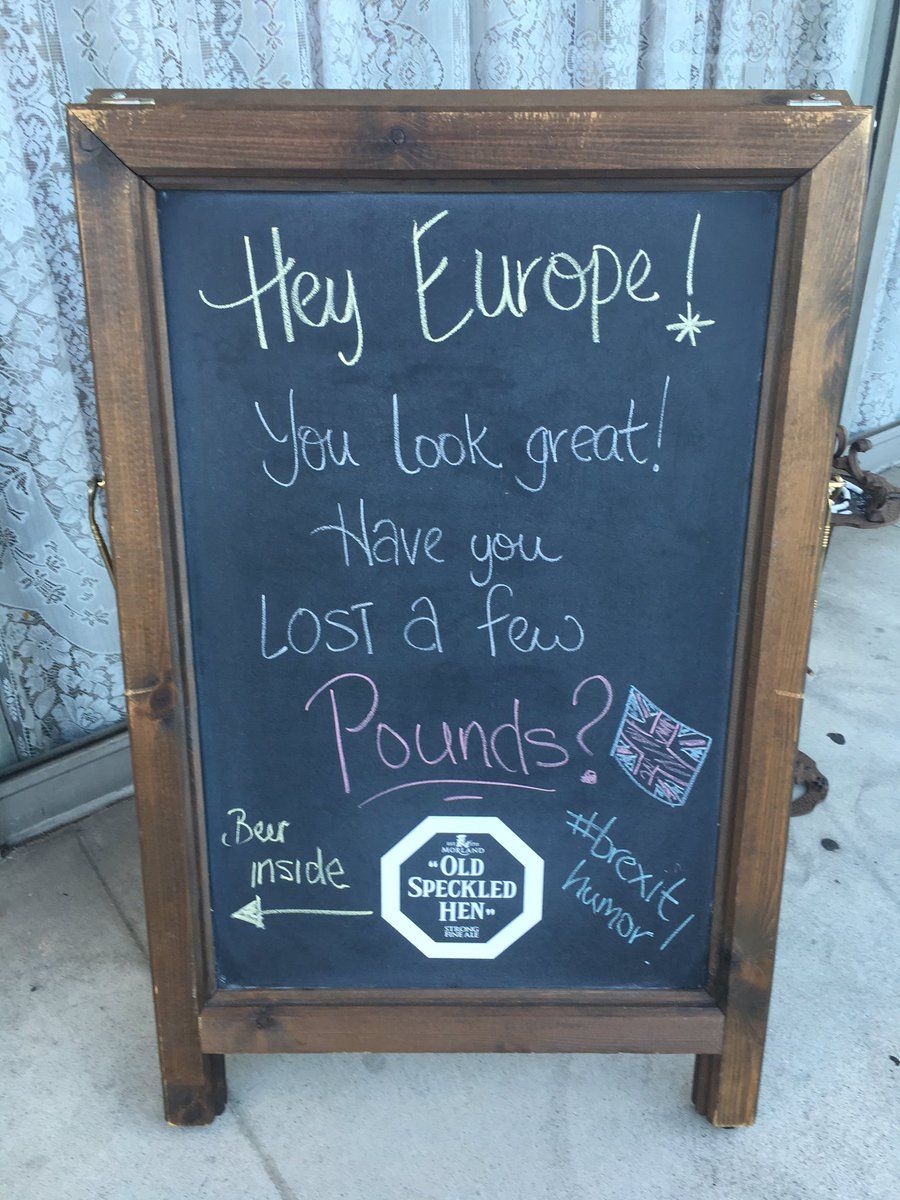 Hey Europe!
You look great!
Have you
LOST a few
Pounds?
Beer
inside
MORLAND
"OLD
SPECKLED
HEN"
STRONG
FINE ALE
#brexit
humor!